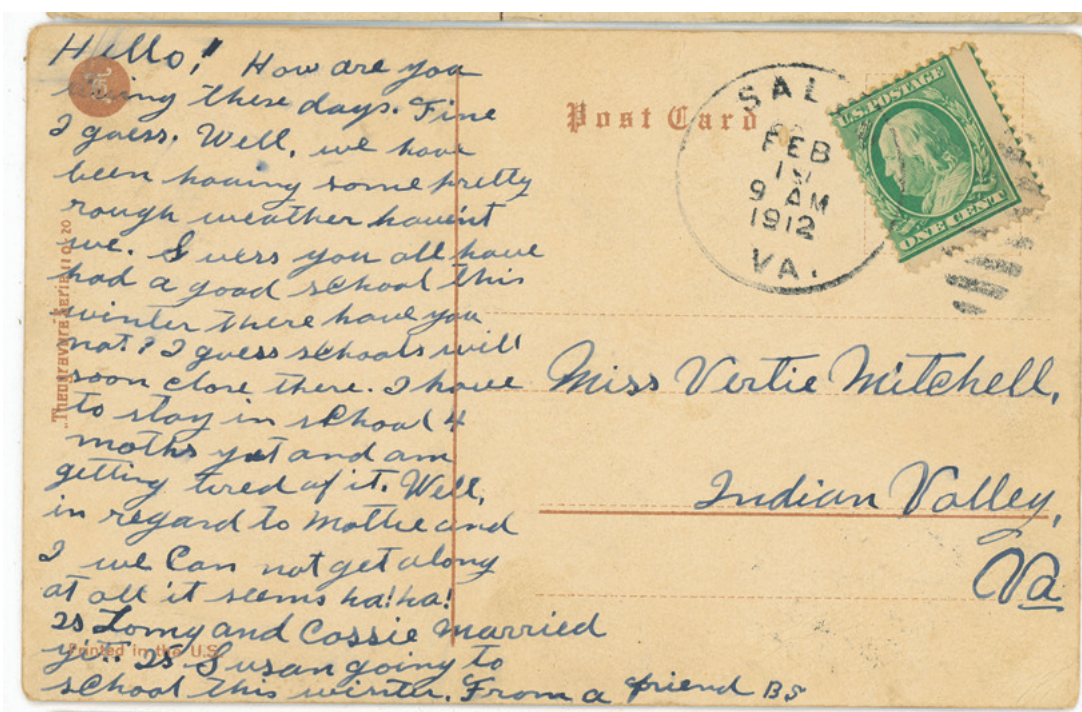 Hello! How are you
these days. Fine
I guess. Well, we have
been having some pretty
rough weather havent
we. Guess you all have
had a good school this
winter there have you
not? I guess schools will
soon close there. I have
to stay in school 4
moths yet and am
getting tired of it. Well,
in regard to Mottie and
I we Can not get along
at all it seems ha! ha!
Is Lomy and Cossie married
yit. Is Susan going to
school this winter. From a friend BS
Post Card
SAL
FEB
9 AM
1912
VA.
U.S. POSTAGE
ONE CENT
Miss Vertie Mitchell,
Indian Valley,
Va
Printed in the U.S.